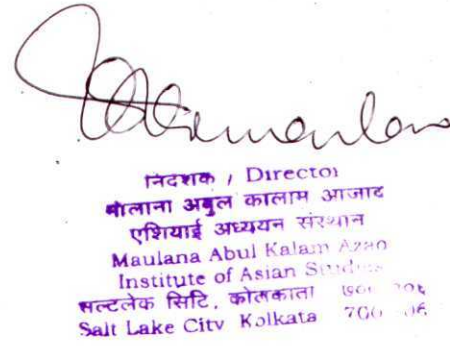 निदेशक / Director
मौलाना अबुल कालाम आजाद
एशियाई अध्ययन संस्थान
Maulana Abul Kalam Azad
Institute of Asian Studies
सल्टलेक सिटि, कोलकाता
Salt Lake City Kolkata